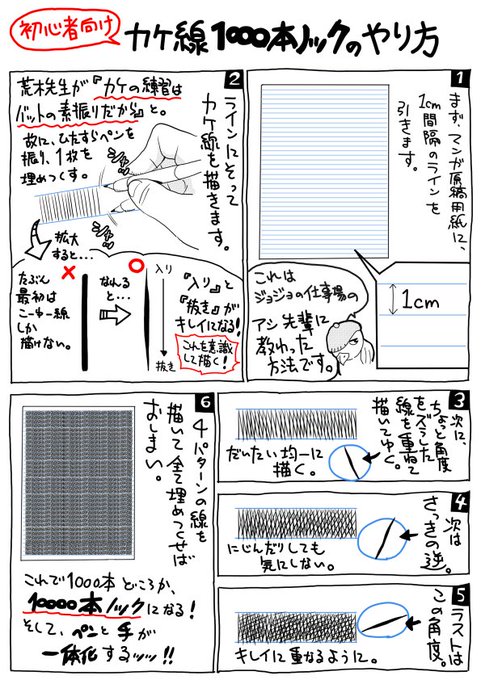 初心者向け
カケ線1000本ノックのやり方
1
まず、マンガ原稿用紙に、
1cm間隔のラインを
引きます。
1cm
これは
ジョジョの仕事場の
アン先輩に
教わった
方法です。
2
ラインにそって
カケ線を描きます。
荒木先生が『カケの練習は
バットの素振りだから』と。
故に、ひたすらペンを
振り、1枚を
埋めつくす。
ジャッ
ジャッ
拡大
すると…
たぶん
最初は
こーゆー線
しか
描けない。
なれる
と…
入り
抜き
『入り』と
『抜き』が
キレイになる!
これを意識
して描く!
3
次に、
ちょっと角度
をズラした
線を重ねて
描いてゆく。
だいたい均一に
描く。
4
次は
さっきの逆。
にじんだりしても
気にしない。
5
ラストは
この角度。
キレイに重なるように。
6
4パターンの線を
描いて全て埋めつくせば
おしまい。
これで1000本どころか、
10000本ノックになる!
そして、ペンと手が
一体化するッッ!!